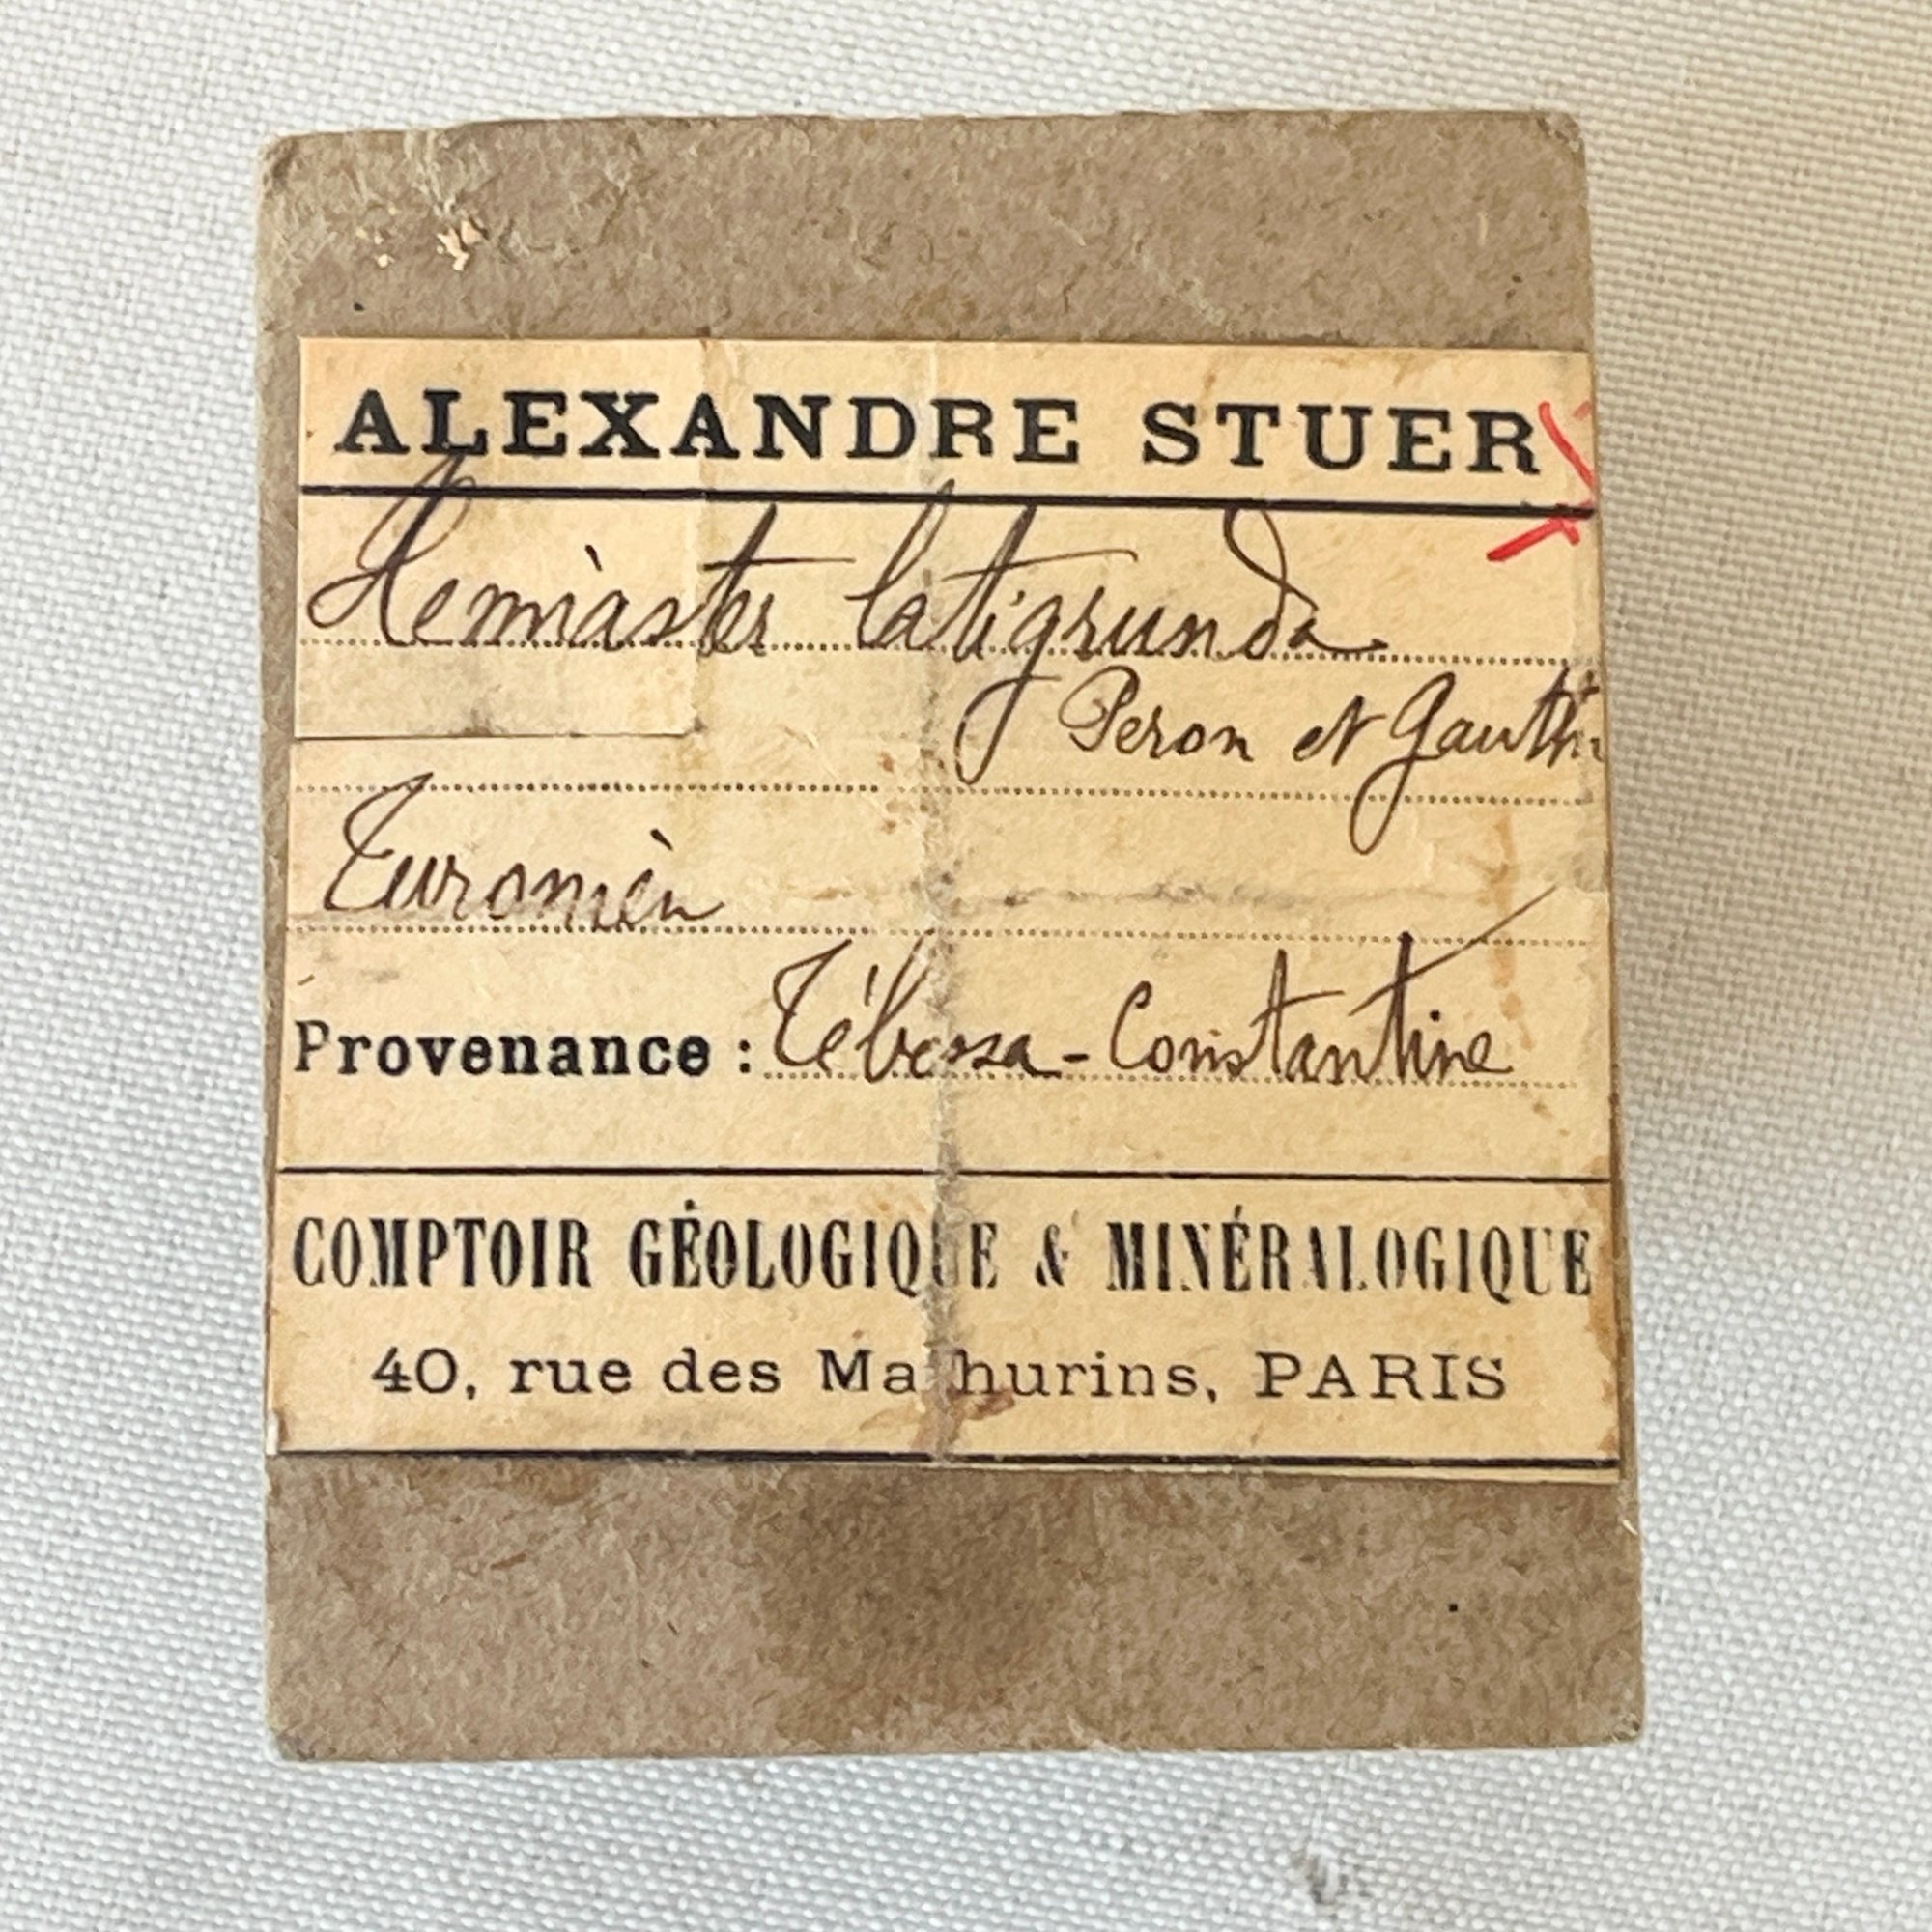 ALEXANDRE STUER
Hemiaster latigrunda
Peron et Gauth
Turonien
Provenance : Tébessa - Constantine
COMPTOIR GÉOLOGIQUE & MINÉRALOGIQUE
40, rue des Mathurins, PARIS